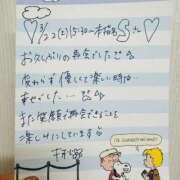 3/22(土)15:30〜本指名 Sさん
お久しぶりの再会でした
変わらず優しくて楽しい時間
幸せでした…
また笑顔で再会できることを
楽しみにしています